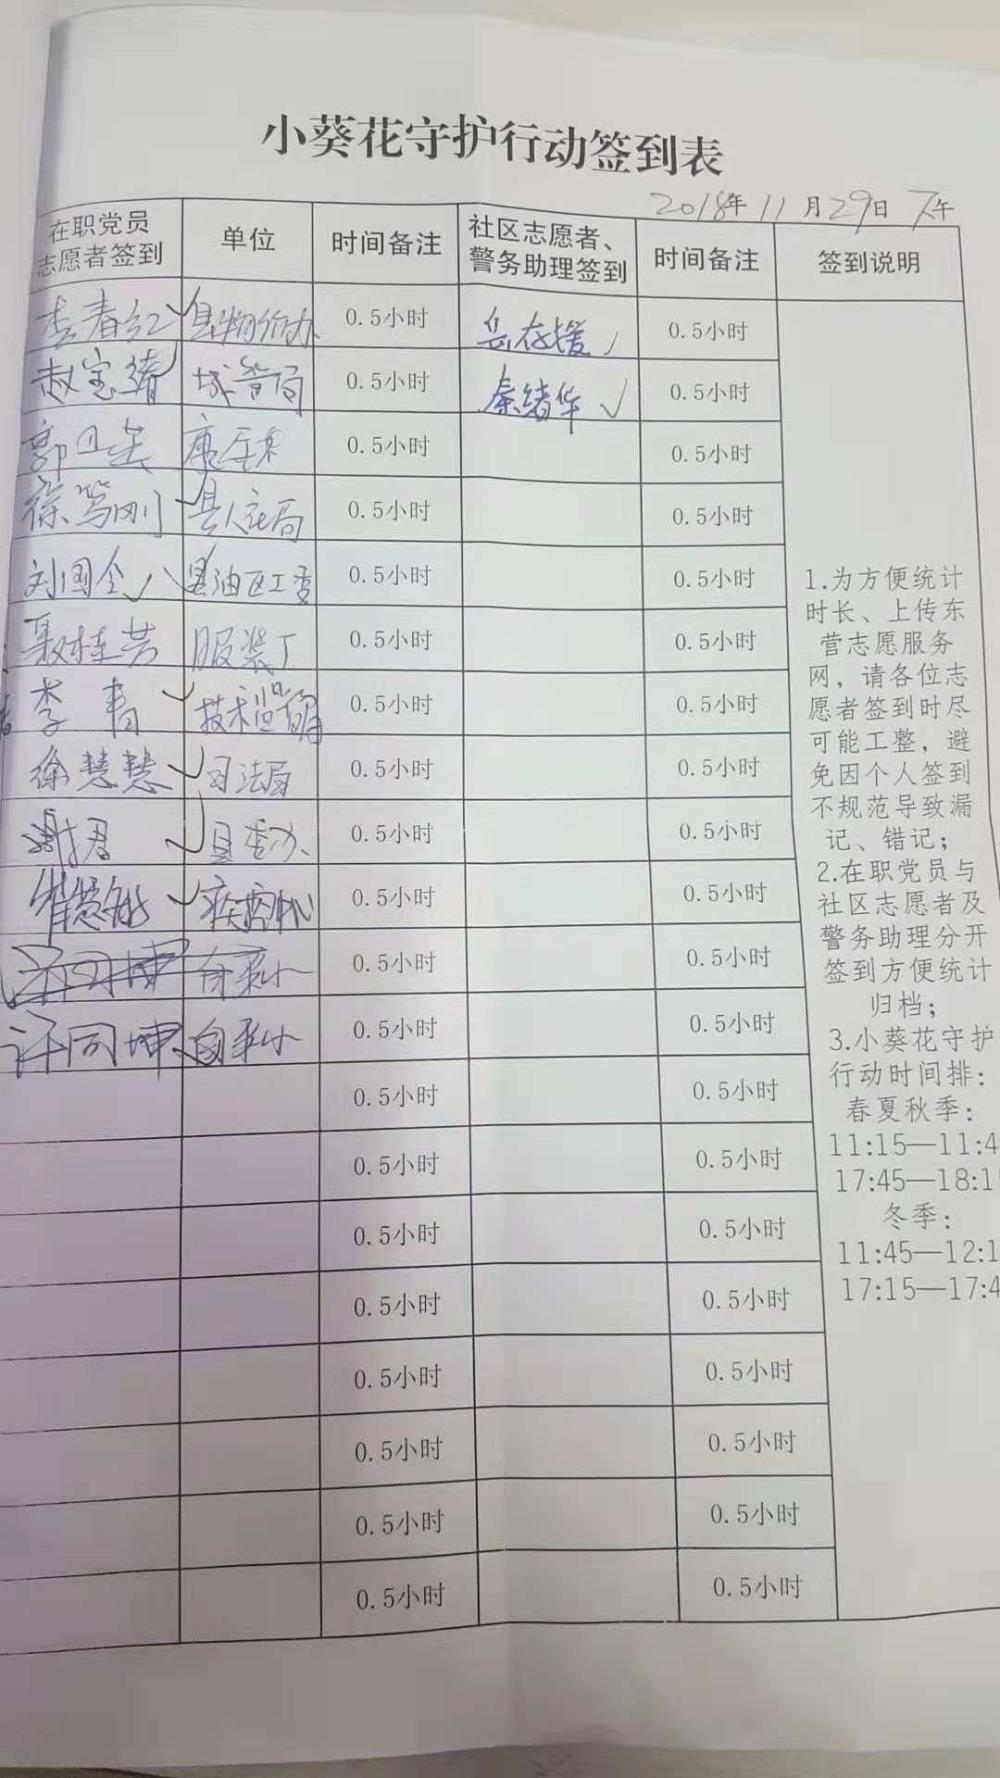 小葵花守护行动签到表
2018年11月29日 下午
在职党员志愿者签到 单位 时间备注 社区志愿者、警务助理签到 时间备注 签到说明
李春红 县物价办 0.5小时 岳在援 0.5小时
赵宝靖 城管局 0.5小时 秦绪华 0.5小时
郭 0.5小时 0.5小时
徐笃刚 县人社局 0.5小时 0.5小时
刘国令 县油区工委 0.5小时 0.5小时
聂桂芸 服装厂 0.5小时 0.5小时
李青 技术监督局 0.5小时 0.5小时
徐慧慧 司法局 0.5小时 0.5小时
谢君 县委办 0.5小时 0.5小时
疾病 0.5小时 0.5小时
许同坤 0.5小时 0.5小时
许同坤 自来水 0.5小时 0.5小时
0.5小时 0.5小时
0.5小时 0.5小时
0.5小时 0.5小时
0.5小时 0.5小时
0.5小时 0.5小时
0.5小时 0.5小时
0.5小时 0.5小时
0.5小时 0.5小时
1.为方便统计
时长、上传东
营志愿服务
网，请各位志
愿者签到时尽
可能工整，避
免因个人签到
不规范导致漏
记、错记；
2.在职党员与
社区志愿者及
警务助理分开
签到方便统计
归档；
3.小葵花守护
行动时间排：
春夏秋季：
11:15—11:4
17:45—18:1
冬季：
11:45—12:1
17:15—17:4